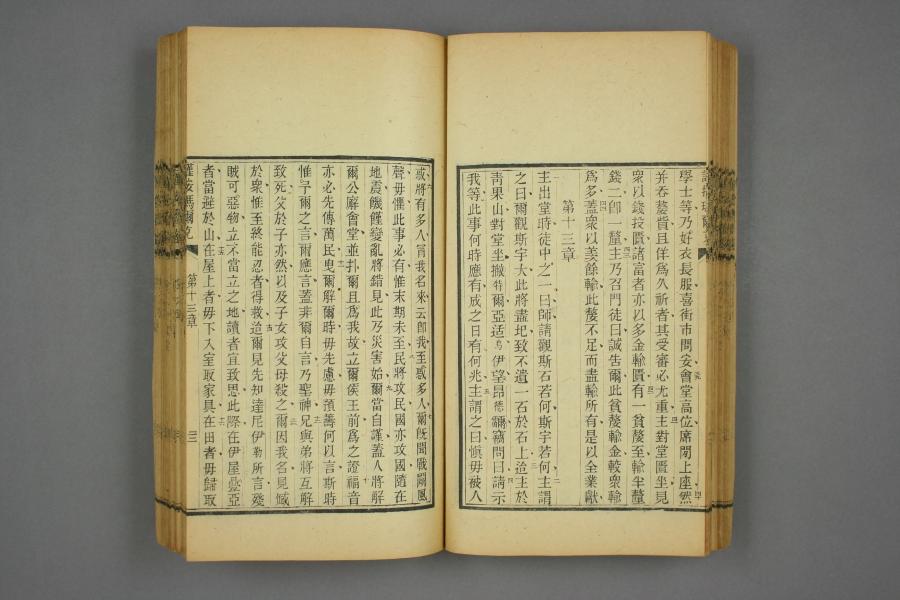 學士等乃好衣長服喜街市問安會堂高位席間上座然
并吞嫠貲且佯爲久祈者其受審必尤重主對堂匱坐見
衆以錢投匱諸富者亦以多金輸匱有一貧嫠至輸半釐
錢二卽一釐主乃召門徒曰誠告爾此貧嫠輸金較衆輸
爲多蓋衆以羨餘輸此嫠不足而盡輸所有是以全業獻
第十三章
主出堂時徒中之一曰師請觀斯石若何斯宇若何主謂
之曰爾觀斯宇大此將盡圮致不遺一石於石上迨主於
靑果山對堂坐撇特爾亞适烏伊望昂德爾竊問曰請示
我等此事何時應有成之日有何兆主謂之曰愼毋被人
惑將有多人冐我名來云卽我至惑多人爾旣聞戰鬬風
聲毋懼此事必有惟末期未至民將攻民國亦攻國隨在
地震饑饉變亂將錯見此乃災害始爾當自謹蓋人將解
爾公廨會堂並扑爾且爲我故立爾侯王前爲之證福音
亦必先傳萬民曳爾解爾時毋先慮毋預籌何以言斯時
惟予爾之言爾應言蓋非爾自言乃聖神兄與弟將互解
致死父於子亦然以及子女攻父母殺之爾因我名見憾
於衆惟至終能忍者得救迨爾見先知達尼伊勒所言殘
賊可惡物立不當立之地讀者宜致思此際在伊屋疊亞
者當避於山在屋上者毋下入室取家具在田者毋歸取
第十三章
三